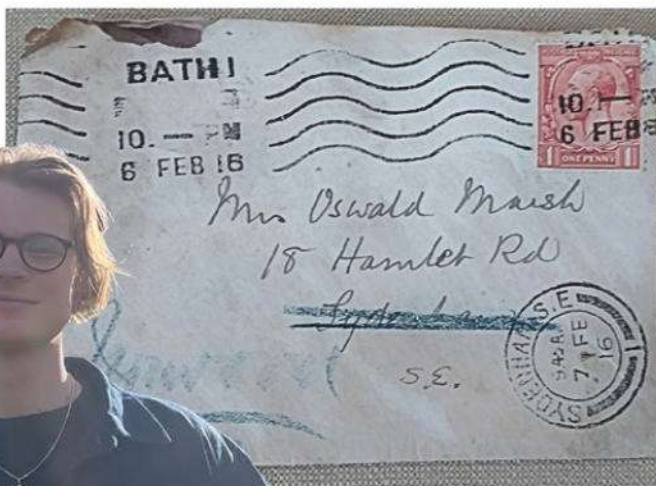 BATH
10. — PM
6 FEB 16
10. —
6 FEB
ONE PENNY
1 1
Mrs Oswald Marsh
18 Hamlet Rd
Sydenham
S.E.
SYDENHAM S.E.
7 FE
16